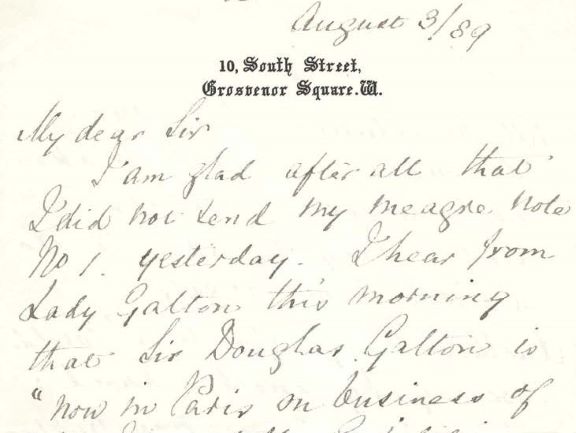 August 3/89
10, South Street,
Grosvenor Square. W.
My dear Sir
I am glad after all that
I did not send my meagre note
No 1. yesterday. I hear from
Lady Galton this morning
that Sir Douglas Galton is
"now in Paris on business of